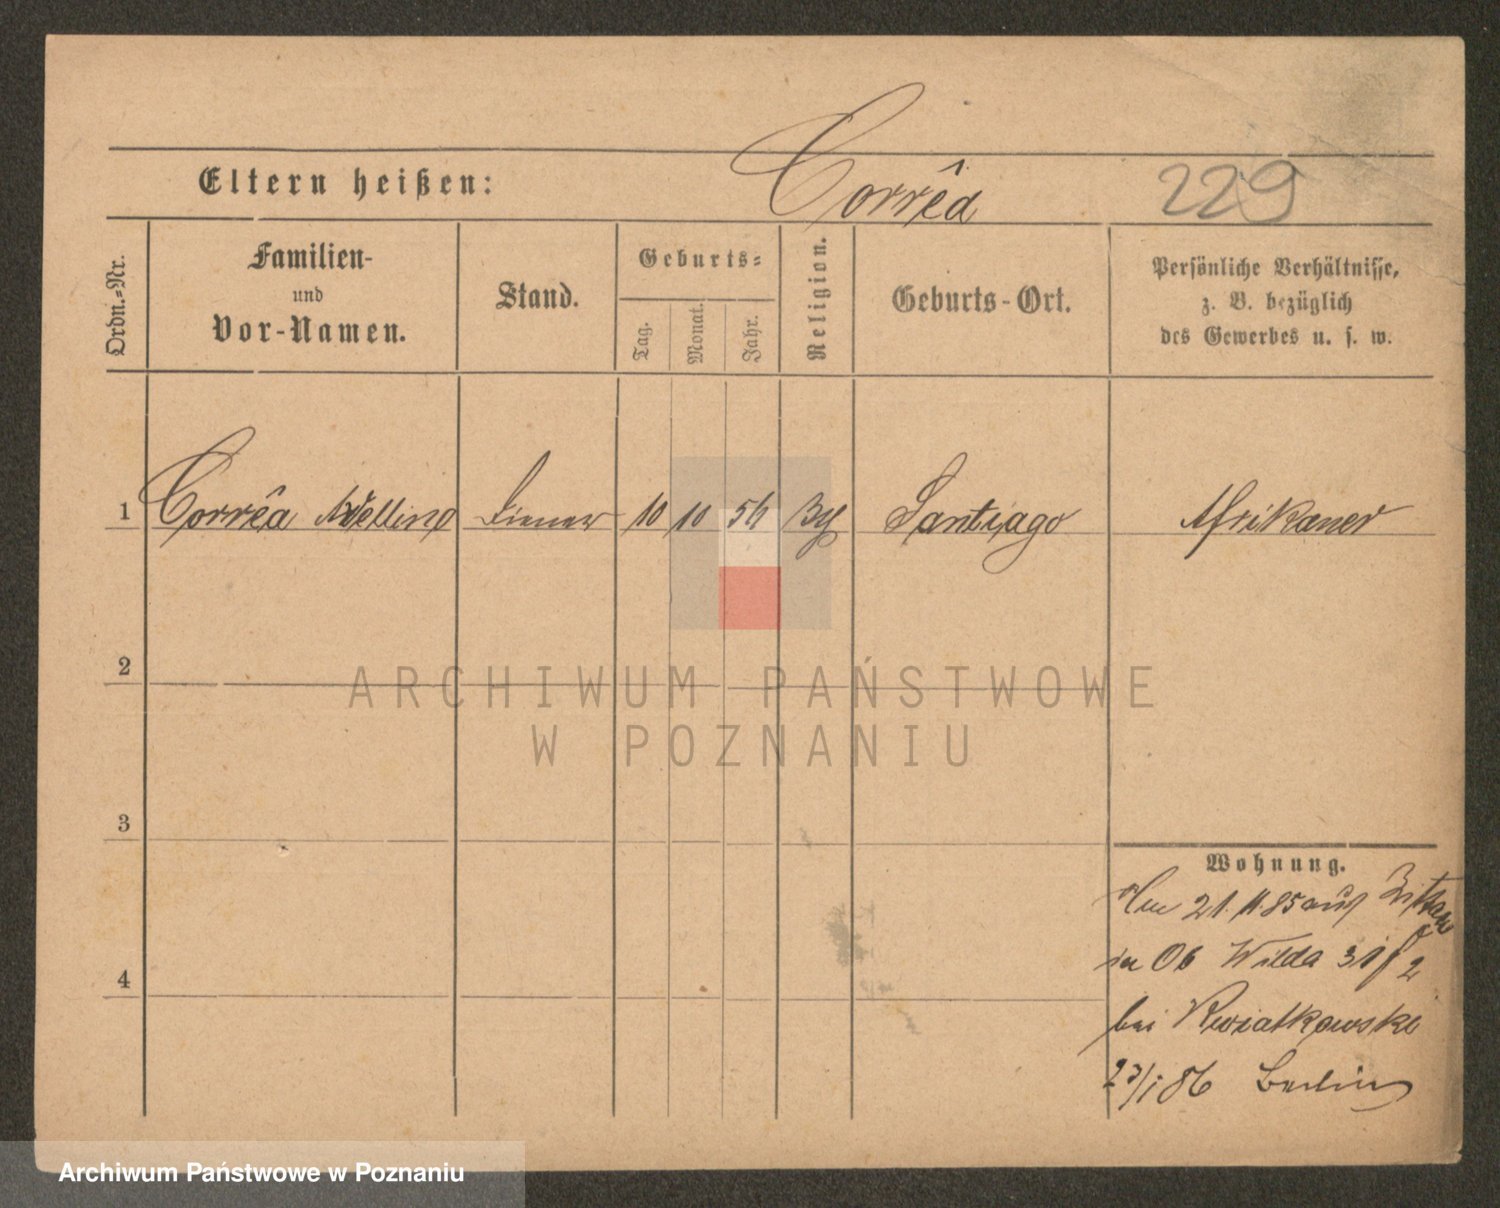 Corrêa
Eltern heißen:
229
Ordn.-Nr.
Familien-
und
Vor-Namen.
Stand.
Geburts-
Tag.
Monat.
Jahr.
Religion.
Geburts-Ort.
Persönliche Verhältnisse,
z. B. bezüglich
des Gewerbes u. s. w.
1 Corrêa Avellino Diener 10 10 56 Santiago Afrikaner
2
ARCHIWUM PAŃSTWOWE
W POZNANIU
3
Wohnung.
21. 11. 85 aus
in Ob Wilda 31
4
bei Kwiatkowski
23/1 86 Berlin
Archiwum Państwowe w Poznaniu